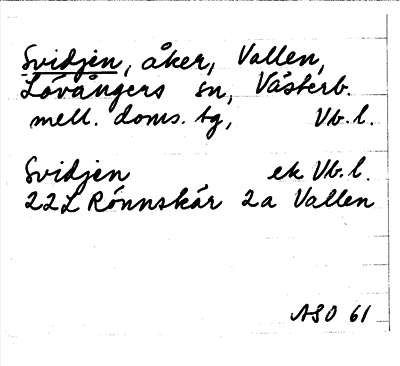 Svidjen, åker, Vallen,
Lövångers sn, Västerb.
mell. doms. tg, Vb. l.
Svidjen ek Vb. l.
22L Rönnskär 2a Vallen
ASO 61